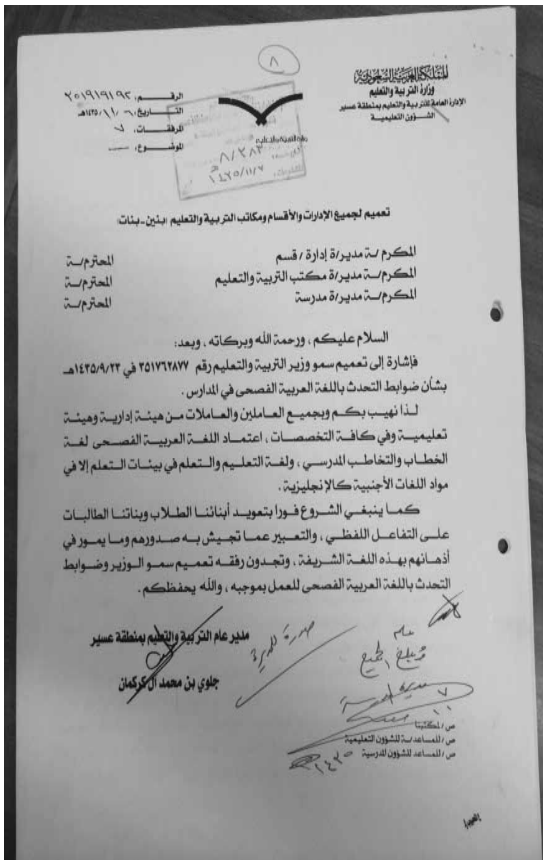 ٨
المملكة العربية السعودية
وزارة التربية والتعليم
الإدارة العامة للتربية والتعليم بمنطقة عسير
الشؤون التعليمية
الرقم: ٣٥١٩١٩١٩٣
التاريخ: ١٤٣٥/١١/٦هـ
المرفقات: ٧
الموضوع:
وزارة التربية والتعليم
٨/٣٨٣
١٤٣٥/١١/٧
تعميم لجميع الإدارات والأقسام ومكاتب التربية والتعليم (بنين-بنات)
المكرم/ـة مدير/ة إدارة / قسم المحترم/ـة
المكرم/ـة مدير/ة مكتب التربية والتعليم المحترم/ـة
المكرم/ـة مدير/ة مدرسة المحترم/ـة
السلام عليكم ، ورحمة الله وبركاته ، وبعد:
فإشارة إلى تعميم سمو وزير التربية والتعليم رقم ٣٥١٧٦٢٨٧٧ في ١٤٣٥/٩/٢٣هـ
بشأن ضوابط التحدث باللغة العربية الفصحى في المدارس .
لـذا نهيب بكم وبجميع العاملين والعاملات من هيئة إدارية وهيئة
تعليمية وفي كافة التخصصات ، اعتماد اللغة العربية الفصحى لغة
الخطاب والتخاطب المدرسي ، ولغة التعليم والتعلم في بيئات التعلم إلا في
مواد اللغات الأجنبية كالإنجليزية .
كما ينبغي الشروع فوراً بتعويد أبنائنا الطلاب وبناتنا الطالبات
على التفاعل اللفظي ، والتعبير عما تجيش به صدورهم وما يمور في
أذهانهم بهذه اللغة الشريفة ، وتجدون رفقه تعميم سمو الوزير وضوابط
التحدث باللغة العربية الفصحى للعمل بموجبه ، والله يحفظكم .
مدير عام التربية والتعليم بمنطقة عسير
جلوي بن محمد آل كركمان
ص / لمكتبنا
ص / للمساعد/ـة للشؤون التعليمية
ص / للمساعد للشؤون المدرسية